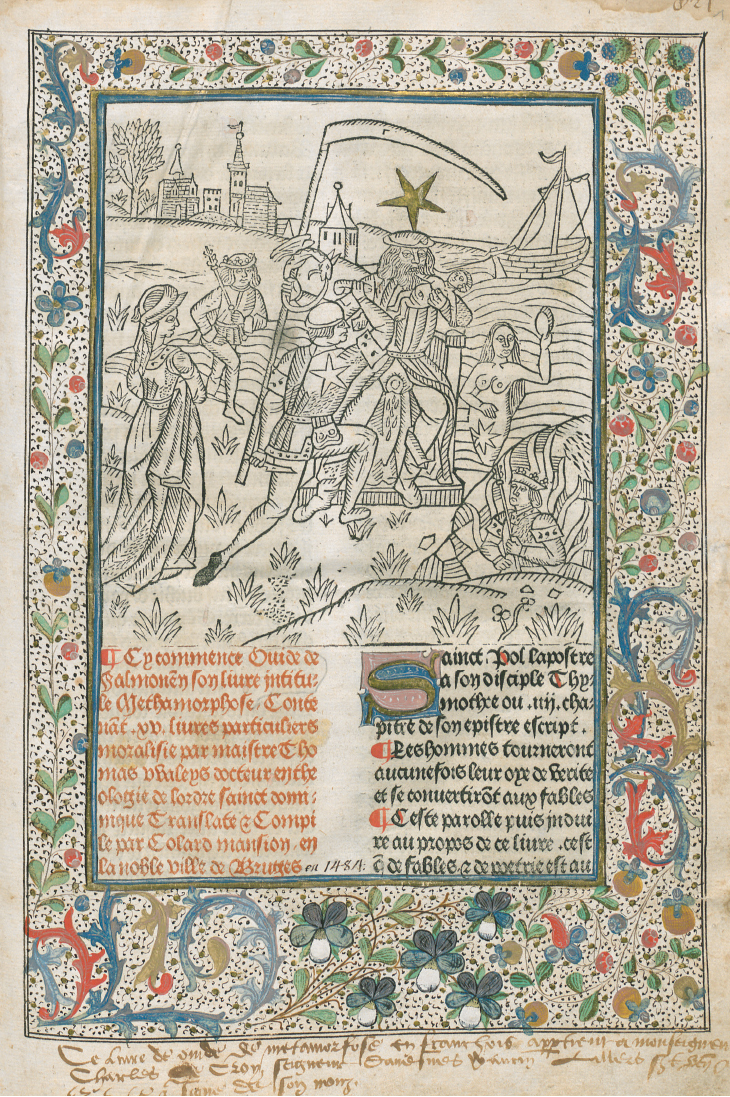 ¶ Cy commence Ouide de
Salmonēn son liure intitu-
le Methamorphose. Conte
nāt .xv. liures particuliers
moralisie par maistre Tho
mas vvaleys docteur en the
ologie de lordre sainct domi:
nique Translate & Compi
le par Colard mansion en
la noble ville de Bruges en 1484
Sainct Pol lapostre
a son disciple Thy
mothee ou .iiij. cha-
pitre de son epistre escript.
¶ Les hommes tourneront
aucunefois leur oye de verite
et se convertirōt aux fables
¶ Ceste parolle puis indui
re au propos de ce liure. cest
q̄ de fables & de poetrie est au
Ce liure de ouide de metamorfose en franchois appertient a monseigneur
Charles de Croy seigneur
de son nom.